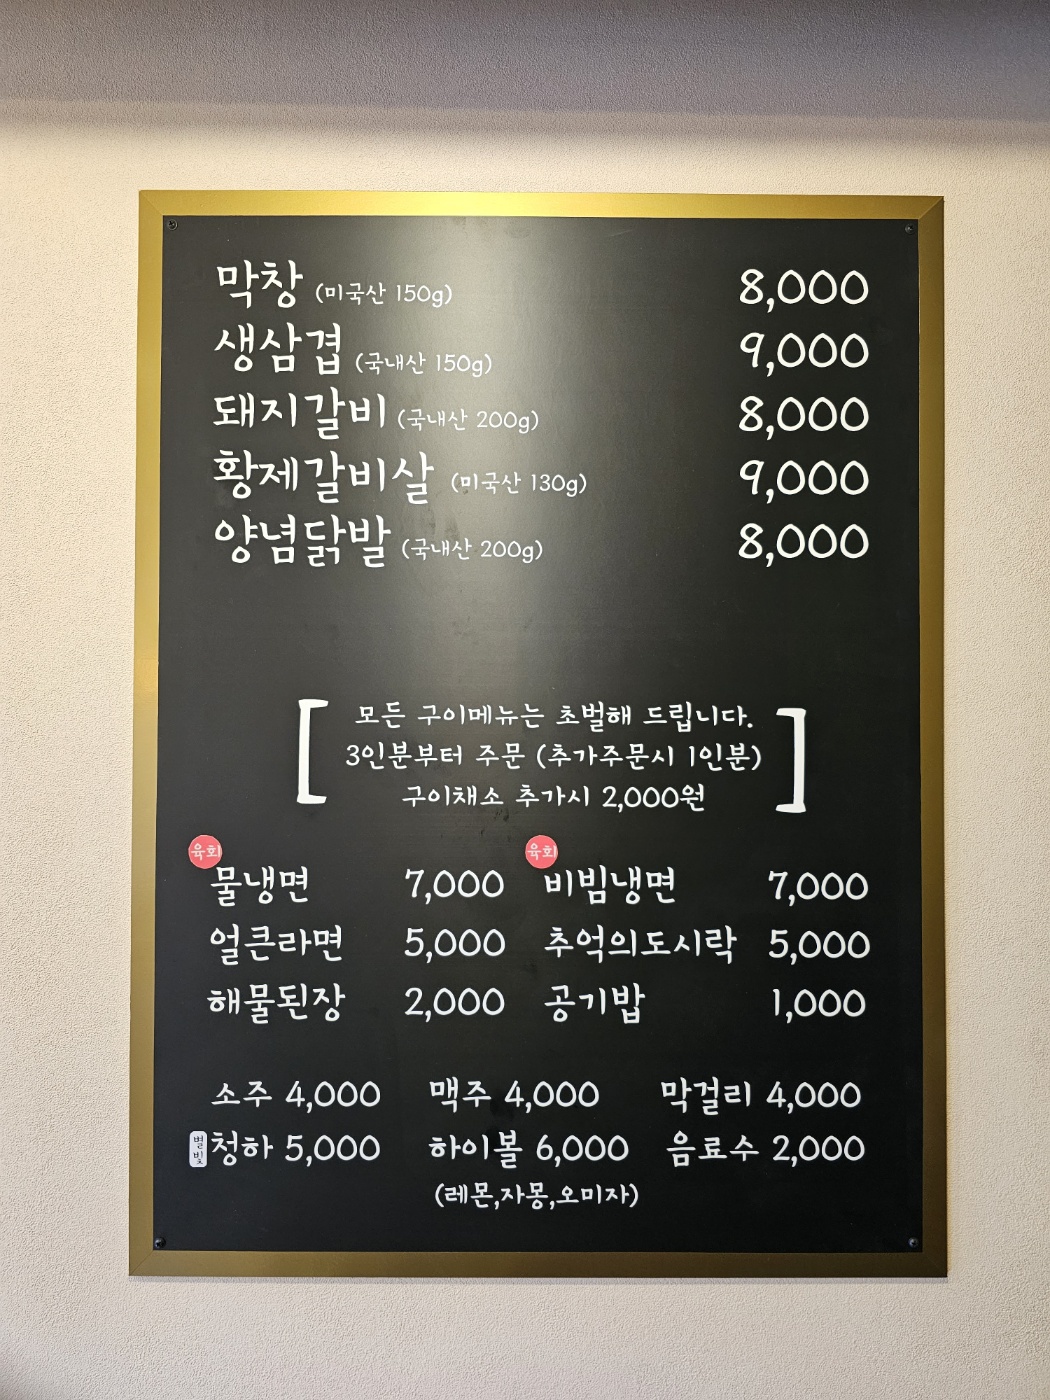 막창 (미국산 150g) 8,000
생삼겹 (국내산 150g) 9,000
돼지갈비 (국내산 200g) 8,000
황제갈비살 (미국산 130g) 9,000
양념닭발 (국내산 200g) 8,000
모든 구이메뉴는 초벌해 드립니다.
3인분부터 주문 (추가주문시 1인분)
구이채소 추가시 2,000원
육회 육회
물냉면 7,000 비빔냉면 7,000
얼큰라면 5,000 추억의도시락 5,000
해물된장 2,000 공기밥 1,000
소주 4,000 맥주 4,000 막걸리 4,000
별빛 청하 5,000 하이볼 6,000 음료수 2,000
(레몬,자몽,오미자)